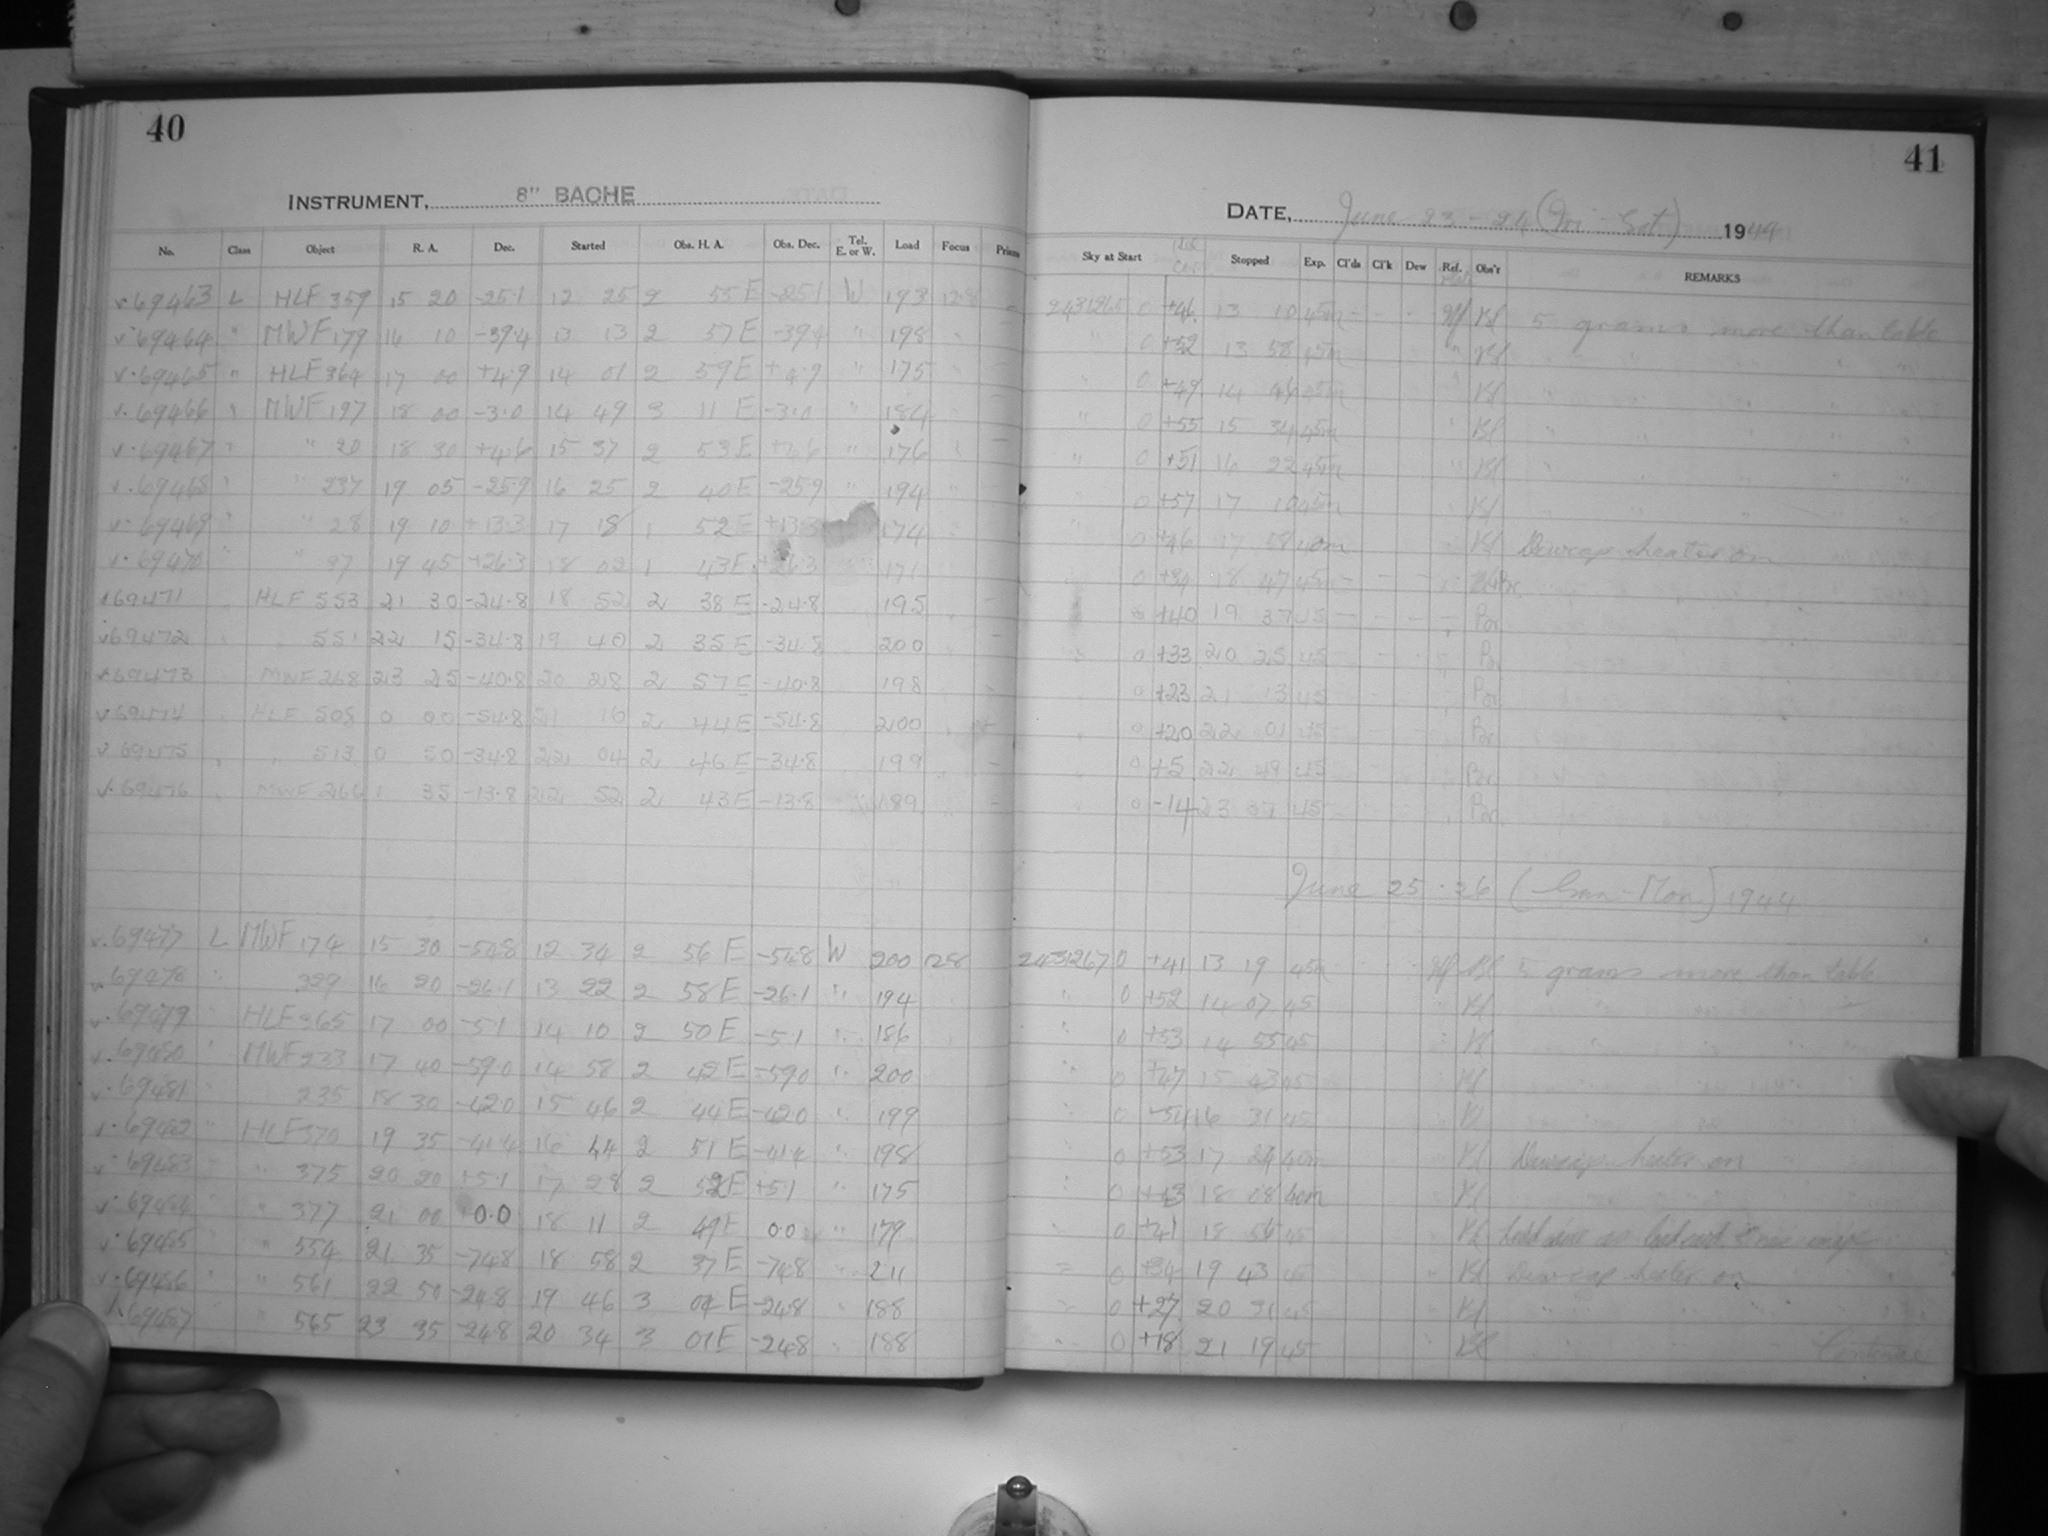 40
INSTRUMENT, 8" BACHE
No. Class Object R. A. Dec. Started Obs. H. A. Obs. Dec. Tel. E. or W. Load Focus Prism
69463 L HLF 359 15 20 -25.1 12 25 2 55 E -25.1 W 193 12.8
69464 " MWF 179 16 10 -39.4 13 13 2 57 E -39.4 " 198
69465 " HLF 364 17 00 +4.9 14 01 2 59 E +4.9 " 175
69466 " MWF 197 18 00 -3.0 14 49 3 11 E -3.0 " 184
69467 " " 20 18 30 +4.6 15 37 2 53 E +4.6 " 176
69468 " " 237 19 05 -25.9 16 25 2 40 E -25.9 " 194
69469 " " 28 19 10 +13.3 17 18 1 52 E +13.3 174
69470 " " 97 19 45 +26.3 18 02 1 43 E +26.3 171
69471 HLF 553 21 30 -24.8 18 52 2 38 E -24.8 195
69472 551 22 15 -34.8 19 40 2 35 E -34.8 200
69473 MWF 268 23 25 -40.8 20 28 2 57 E -40.8 198
69474 HLF 505 0 00 -54.8 21 16 2 44 E -54.8 200
69475 " 513 0 50 -34.8 22 04 2 46 E -34.8 199
69476 MWF 266 1 35 -13.8 22 52 2 43 E -13.8 189
69477 L MWF 174 15 30 -54.8 12 34 2 56 E -54.8 W 200 12.8
69478 " 229 16 20 -26.1 13 22 2 58 E -26.1 " 194
69479 " HLF 365 17 00 -5.1 14 10 2 50 E -5.1 " 186
69480 " MWF 233 17 40 -59.0 14 58 2 42 E -59.0 " 200
69481 " 235 18 30 -42.0 15 46 2 44 E -42.0 " 199
69482 " HLF 370 19 35 -41.4 16 44 2 51 E -41.4 " 198
69483 " 375 20 20 +5.1 17 28 2 52 E +5.1 " 175
69484 " 377 21 00 0.0 18 11 2 49 E 0.0 " 179
69485 " 554 21 35 -74.8 18 58 2 37 E -74.8 " 211
69486 " " 561 22 50 -24.8 19 46 3 04 E -24.8 " 188
69487 " 565 23 35 -24.8 20 34 3 01 E -24.8 " 188
41
DATE, June 23-24 (Fri-Sat) 1944
Sky at Start Stopped Exp. Cl'ds Cl'k Dew Ref. Obs'r REMARKS
2431265 0 +46 13 10 45m Bl 5 grams more than table
" 0 +52 13 58 45m " Bl
" 0 +49 14 46 45m Bl
" 0 +55 15 34 45m " Bl
" 0 +51 16 22 45m " Bl
0 +57 17 10 45m Bl
0 +46 17 58 40m Bl Dewcap heater on
0 +39 18 47 45m
+40 19 37 45 Por
0 +33 20 25 45 Por
0 +23 21 13 45 Por
0 +20 22 01 45 Por
0 +5 22 49 45 Por
0 -14 23 37 45 Por
June 25-26 (Sun-Mon) 1944
2431267 0 +41 13 19 45m Bl 5 grams more than table
" 0 +52 14 07 45 Bl
0 +53 14 55 45 Bl
0 +47 15 43 45 Bl
0 16 31 45 Bl
0 +53 17 24 40m Bl Dewcap heater on
0 +43 18 08 40m Bl
0 +41 18 56 45 Bl
0 +34 19 43 45 Bl Dewcap heater on
0 +27 20 31 45 Bl
0 +18 21 19 45 Bl Continue